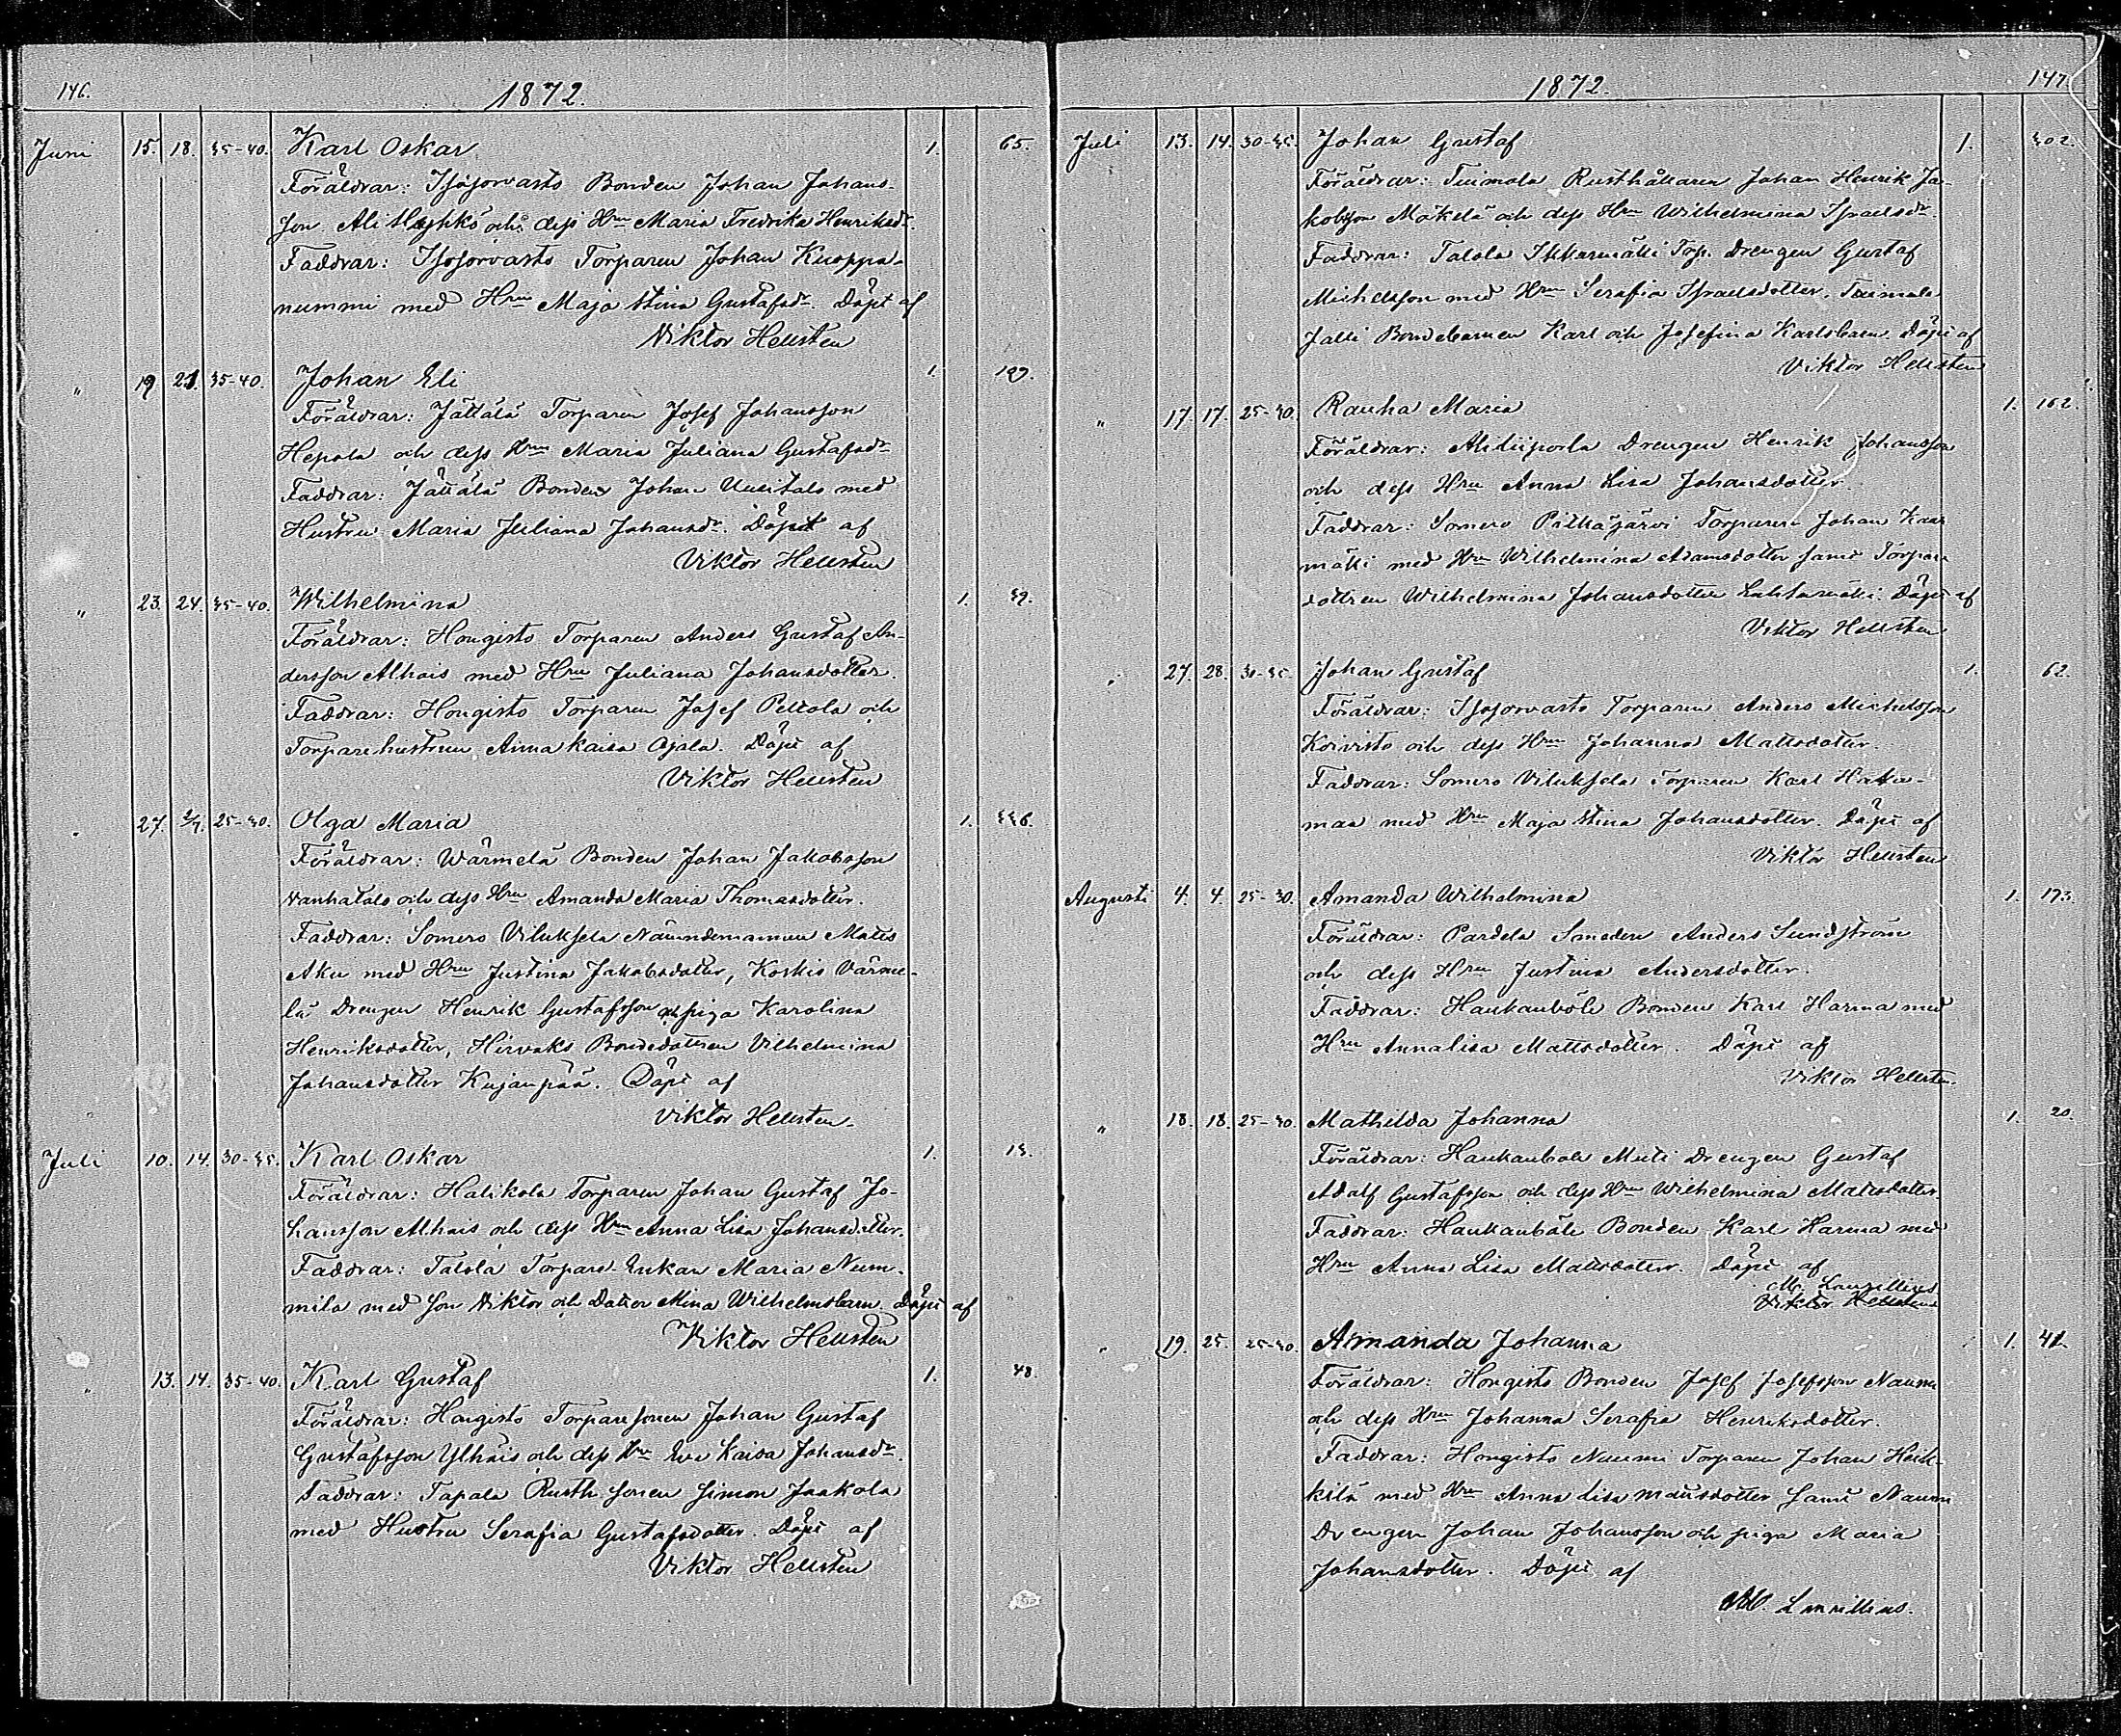 146.
1872.
Juni 15. 18. 35-40. Karl Oskar 1. 65.
Föräldrar: Isosorvasto Bonden Johan Johans-
son Ali och dess Hru Maria Fredrika Henriksdr.
Faddrar: Isosorvasto Torparen Johan Kuoppa-
nummi med Hru Maja Stina Gustafsdr. Döpt af
Viktor Hellsten
" 19 21. 35-40. Johan Eli 1. 199.
Föräldrar: Jättälä Torparen Josef Johansson
Hepola och dess Hru Maria Juliana Gustafsdr
Faddrar: Jättälä Bonden Johan Uusitalo med
Hustru Maria Juliana Johansdr. Döpt af
Viktor Hellsten
" 23. 24. 35-40. Wilhelmina 1. 39.
Föräldrar: Hongisto Torparen Anders Gustaf An-
dersson Alhais med Hru Juliana Johansdotter.
Faddrar: Hongisto Torparen Josef Peltola och
Torparehustrun Anna Kaisa Ojala. Döpt af
Viktor Hellsten
" 27. 2/7. 25-30. Olga Maria 1. 336.
Föräldrar: Wärmelä Bonden Johan Jakobsson
Vanhatalo och dess Hru Amanda Maria Thomasdotter.
Faddrar: Somero Viluksela Nämndemannen Matts
Aku med Hru Justina Jakobsdotter, Koskis Värme-
lä Drengen Henrik Gustafsson och piga Karolina
Henriksdotter, Hirvaks Bondedottren Vilhelmina
Johansdotter Kujanpää. Döpt af
Viktor Hellsten.
Juli 10. 14. 30-35. Karl Oskar 1. 13.
Föräldrar: Halikola Torparen Johan Gustaf Jo-
hansson Alhais och dess Hru Anna Lisa Johansdotter.
Faddrar: Talola Torpare Enkan Maria Num-
mila med son Viktor och Dotter Mina Wilhelmsbarn. Döpt af
Viktor Hellsten
" 13. 14. 35-40. Karl Gustaf 1. 48.
Föräldrar: Hongisto Torparesonen Johan Gustaf
Gustafsson Ylhais och dess Hru Eva Kaisa Johansdr.
Faddrar: Tapala Rusth. sonen Simon Jaakola
med Hustru Serafia Gustafsdotter. Döpt af
Viktor Hellsten
1872.
147
Juli 13. 14. 30-35. Johan Gustaf 1. 302.
Föräldrar: Tuimala Rusthållaren Johan Henrik Ja-
kobsson Mäkelä och dess Hru Wilhelmina Israelsdr.
Faddrar: Talola Torp. Drengen Gustaf
Michelsson med Hru Serafia Israelsdotter, Tuimala
Jalli Bondebarnen Karl och Josefina Karlsbarn. Döpt af
Viktor Hellsten
" 17. 17. 25-30. Rauha Maria 1. 162.
Föräldrar: Drengen Henrik Johansson
och dess Hru Anna Lisa Johansdotter.
Faddrar: Somero Pitkäjärvi Torparen Johan
mäki med Hru Wilhelmina Adamsdotter samt Torpare
dottren Wilhelmina Johansdotter Lahtamäki. Döpt af
Viktor Hellsten
" 27. 28. 30-35. Johan Gustaf 1. 62.
Föräldrar: Isosorvasto Torparen Anders Michelsson
Koivisto och dess Hru Johanna Mattsdotter.
Faddrar: Somero Viluksela Torparen Karl Haka-
maa med Hru Maja Stina Johansdotter. Döpt af
Viktor Hellsten
Augusti 4. 4. 25-30. Amanda Wilhelmina 1. 173.
Föräldrar: Pardela Smeden Anders Sundström
och dess Hru Justina Andersdotter.
Faddrar: Haukanböle Bonden Karl Harma med
Hru Annalisa Mattsdotter. Döpt af
Viktor Hellsten.
" 18. 18. 25-30. Mathilda Johanna 1. 20.
Föräldrar: Haukanböle Drengen Gustaf
Adolf Gustafsson och dess Hru Wilhelmina Mattsdotter.
Faddrar: Haukanböle Bonden Karl Harma med
Hru Anna Lisa Mattsdotter. Döpt af
Viktor Hellsten
" 19. 25. 25-30. Amanda Johanna 1. 41.
Föräldrar: Hongisto Bonden Josef Josefsson Naumi
och dess Hru Johanna Serafia Henriksdotter.
Faddrar: Hongisto Naumi Torparen Johan Heik-
kilä med Hru Anna Lisa Mattsdotter samt Naumi
Drengen Johan Johansson och piga Maria
Johansdotter. Döpt af